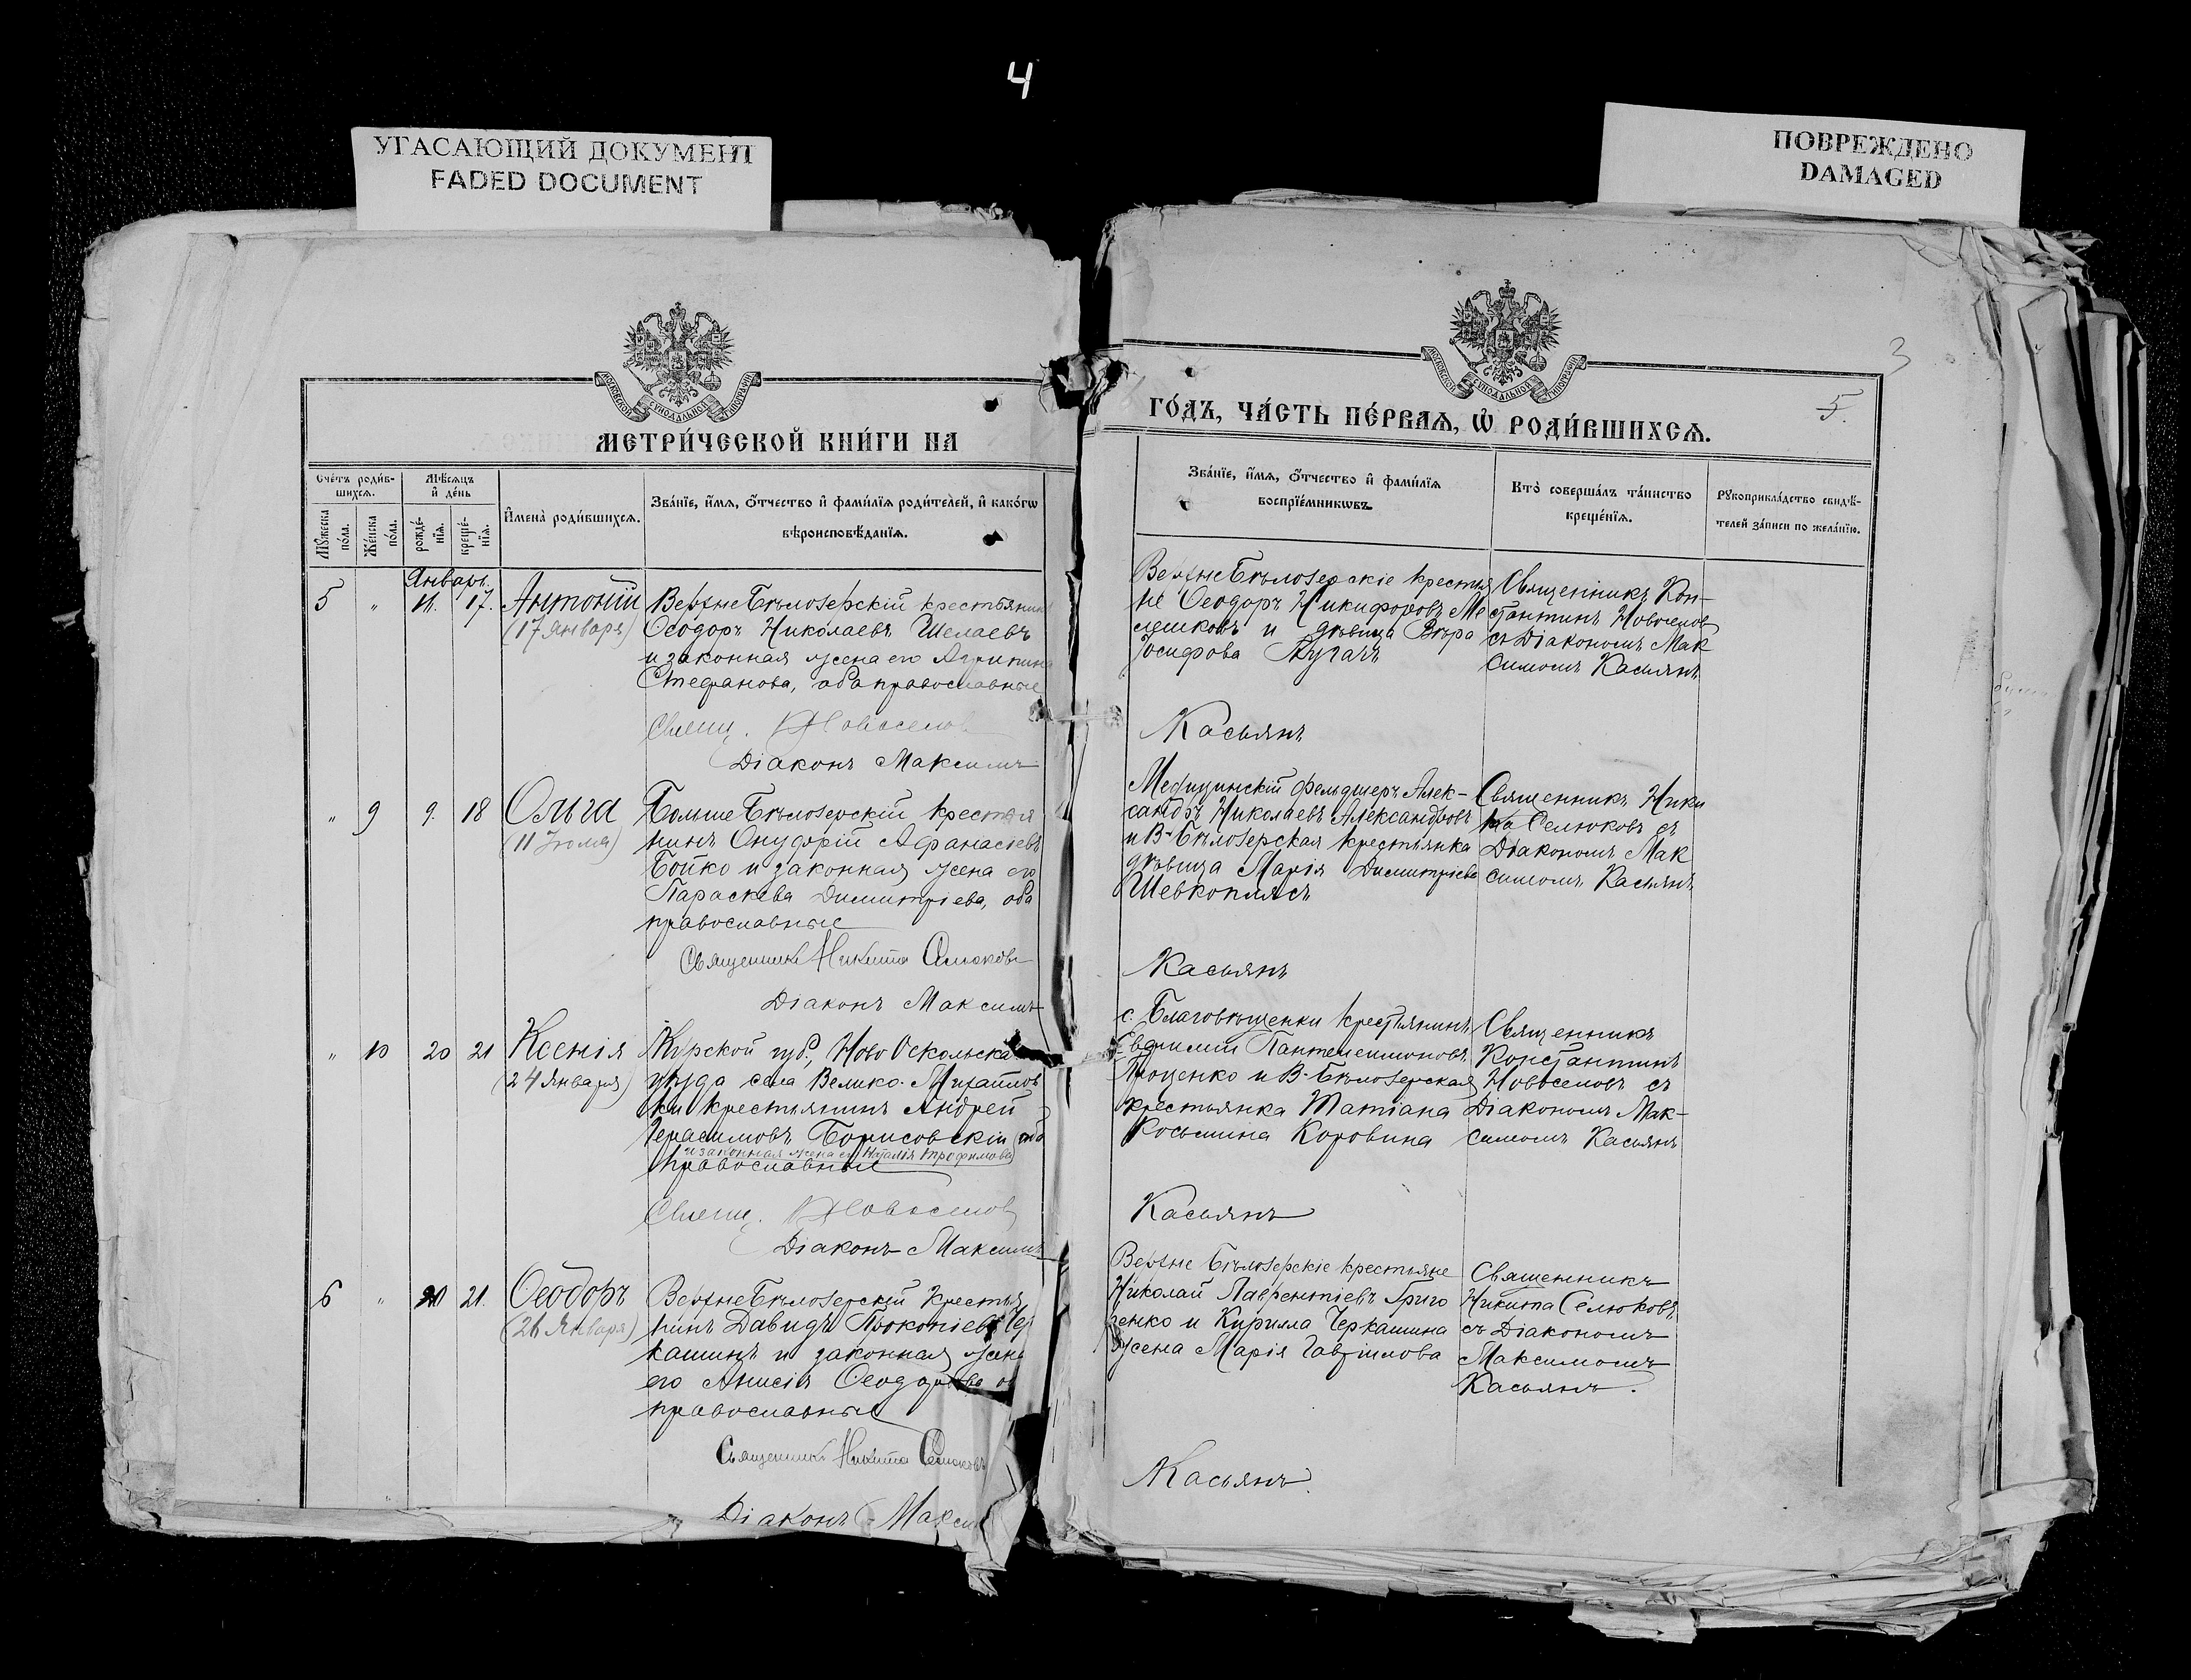 4
УГАСАЮЩИЙ ДОКУМЕНТ
FADED DOCUMENT
ПОВРЕЖДЕНО
DAMAGED
МОСКОВСКОЙ СѴНОДАЛЬНОЙ ТИПОГРАФІИ
МЕТРИ́ЧЕСКОЙ КНИ́ГИ НА
Сче́тъ роди́в-
шихсѧ.
Мѣ́сѧцъ
и҆ де́нь
Мꙋ́жеска
по́ла.
Же́нска
по́ла.
рожде́-
нїѧ.
креще́-
нїѧ.
И҆мена̀ роди́вшихсѧ.
Зва́нїе, и҆́мѧ, ѻ҆́тчество и҆ фами́лїѧ роди́телей, и҆ како́гѡ
вѣроисповѣ́данїѧ.
Январь.
5 " 11. 17. Антоній
(17 января)
ВерхнеБѣлозерскій крестьянинъ
Ѳеодоръ Николаевъ Шелаевъ
и законная жена его Агрипина
Стефанова, оба православные
Свящ. Новоселов
Діаконъ Максимъ
" 9 9. 18 Ольга
(11 Іюля)
БольшеБѣлозерскій крестья
нинъ Онуфрій Афанасіевъ
Бойко и законная жена его
Параскева Димитріева, оба
православные
Священникъ Никита Селюковъ
Діаконъ Максимъ
" 10 20 21 Ксенія
(24 января)
Курской губ., НовоОскольска
уѣзда села Велико-Михайлов
ки крестьянинъ Андрей
Герасимовъ Борисовскій оба
и законная жена его Наталія Трофимова
православные
Свящ. Новоселов
Діаконъ Максимъ
6 " 21. Ѳеодоръ
(26 Января)
ВерхнеБѣлозерскій крестья
нинъ Давидъ Прокопіевъ Чер
кашинъ и законная жена
его Анисія Ѳеодорова
православные
Священникъ Никита Селюковъ
Діаконъ Макси
3
5.
МОСКОВСКОЙ СѴНОДАЛЬНОЙ ТИПОГРАФІИ
ГО́ДЪ, ЧА́СТЬ ПЕ́РВАѦ, Ѡ҆ РОДИ́ВШИХСѦ.
Зва́нїе, и҆́мѧ, ѻ҆́тчество и҆ фами́лїѧ
воспрїе́мникѡвъ.
Кто̀ соверша́лъ та́инство
креще́нїѧ.
Рꙋкоприкла́дство свидѣ́-
телей за́писи по жела́нїю.
ВерхнеБѣлозерскіе крестья
не Ѳеодоръ Никифоровъ Ме
лешковъ и дѣвица Вѣра
Іосифова Пугачъ
Священникъ Кон-
стантинъ Новоселовъ
съ Діакономъ Мак
симомъ Касьянъ
Касьянъ
Медицинскій фельдшеръ Алек-
сандръ Николаевъ Александровъ
и В-Бѣлозерская крестьянка
дѣвица Марія Димитріева
Шевкоплясъ
Священникъ Ники
та Селюковъ съ
Діакономъ Мак
симомъ Касьянъ
Касьянъ
с. Благовѣщенки крестьянинъ
Евфимій Пантелеимоновъ
Проценко и В-Бѣлозерская
крестьянка Татіана
Косьмина Коровина
Священникъ
Константинъ
Новоселовъ съ
Діакономъ Мак-
симомъ Касьянъ
Касьянъ
Верхне Бѣлозерскіе крестьяне
Николай Лаврентіевъ Григо
ренко и Кирилла Черкашина
жена Марія Гавріилова
Священникъ
Никита Селюковъ
съ Діакономъ
Максимомъ
Касьянъ.
Касьянъ